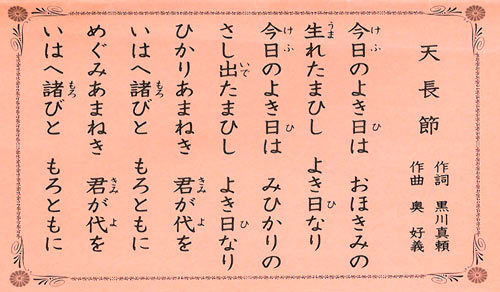 天長節
作詞 黒川真頼
作曲 奥 好義
今日のよき日は おほきみの
生れたまひし よき日なり
今日のよき日は みひかりの
さし出たまひし よき日なり
ひかりあまねき 君が代を
いはへ諸びと もろともに
めぐみあまねき 君が代を
いはへ諸びと もろともに